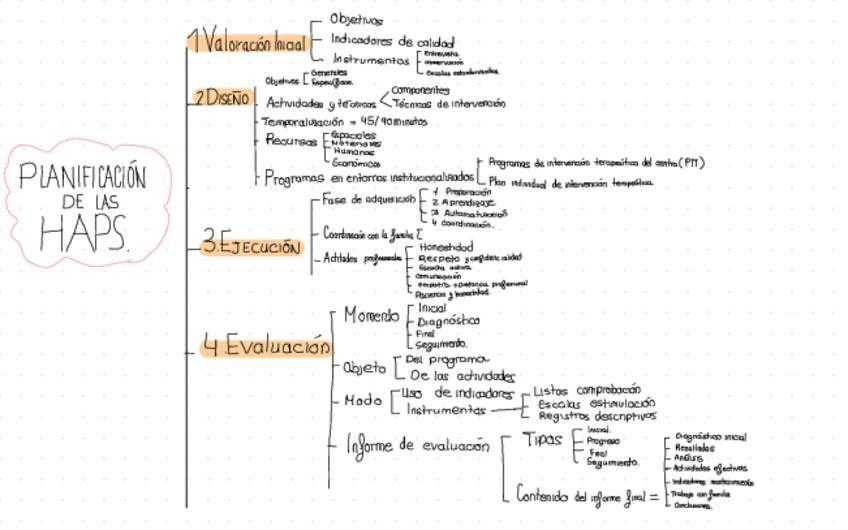 PLANIFICACIÓN
DE LAS
HAPS.
1 Valoración Inicial
Objetivos
Indicadores de calidad
Instrumentos
Entrevista
observación
Escalas estandarizadas
2 DISEÑO
Objetivos
Generales
Específicos
Actividades y técnicas
Componentes
Técnicas de intervención
Temporalización = 45/90 minutos
Recursos
Espaciales
Materiales
Humanos
Económicos
Programas en entornos institucionalizados
Programas de intervención terapeútica del centro (PIT)
Plan individual de intervención terapeútica
3. EJECUCIÓN
Fase de adquisición
1 Preparación
2 Aprendizaje
3 Automatización
4 coordinación.
Coordinación con la familia
Actitudes profesionales
Honestidad
Respeto y confidencialidad
Escucha activa
comunicación
empatía + distancia profesional
Paciencia y
4. Evaluación
Momento
Inicial
Diagnóstica
Final
Seguimiento.
Objeto
Del programa
De las actividades
Modo
Uso de indicadores
Instrumentos
Listas comprobación
Escalas estimulación
Registros descriptivos
Informe de evaluación
Tipos
Inicial.
Progreso
Final
Seguimiento.
Contenido del informe final =
Diagnóstico inicial
Resultados
Análisis
Actividades efectivas
Indicadores mantenimiento
Trabajo con familia
Conclusiones.